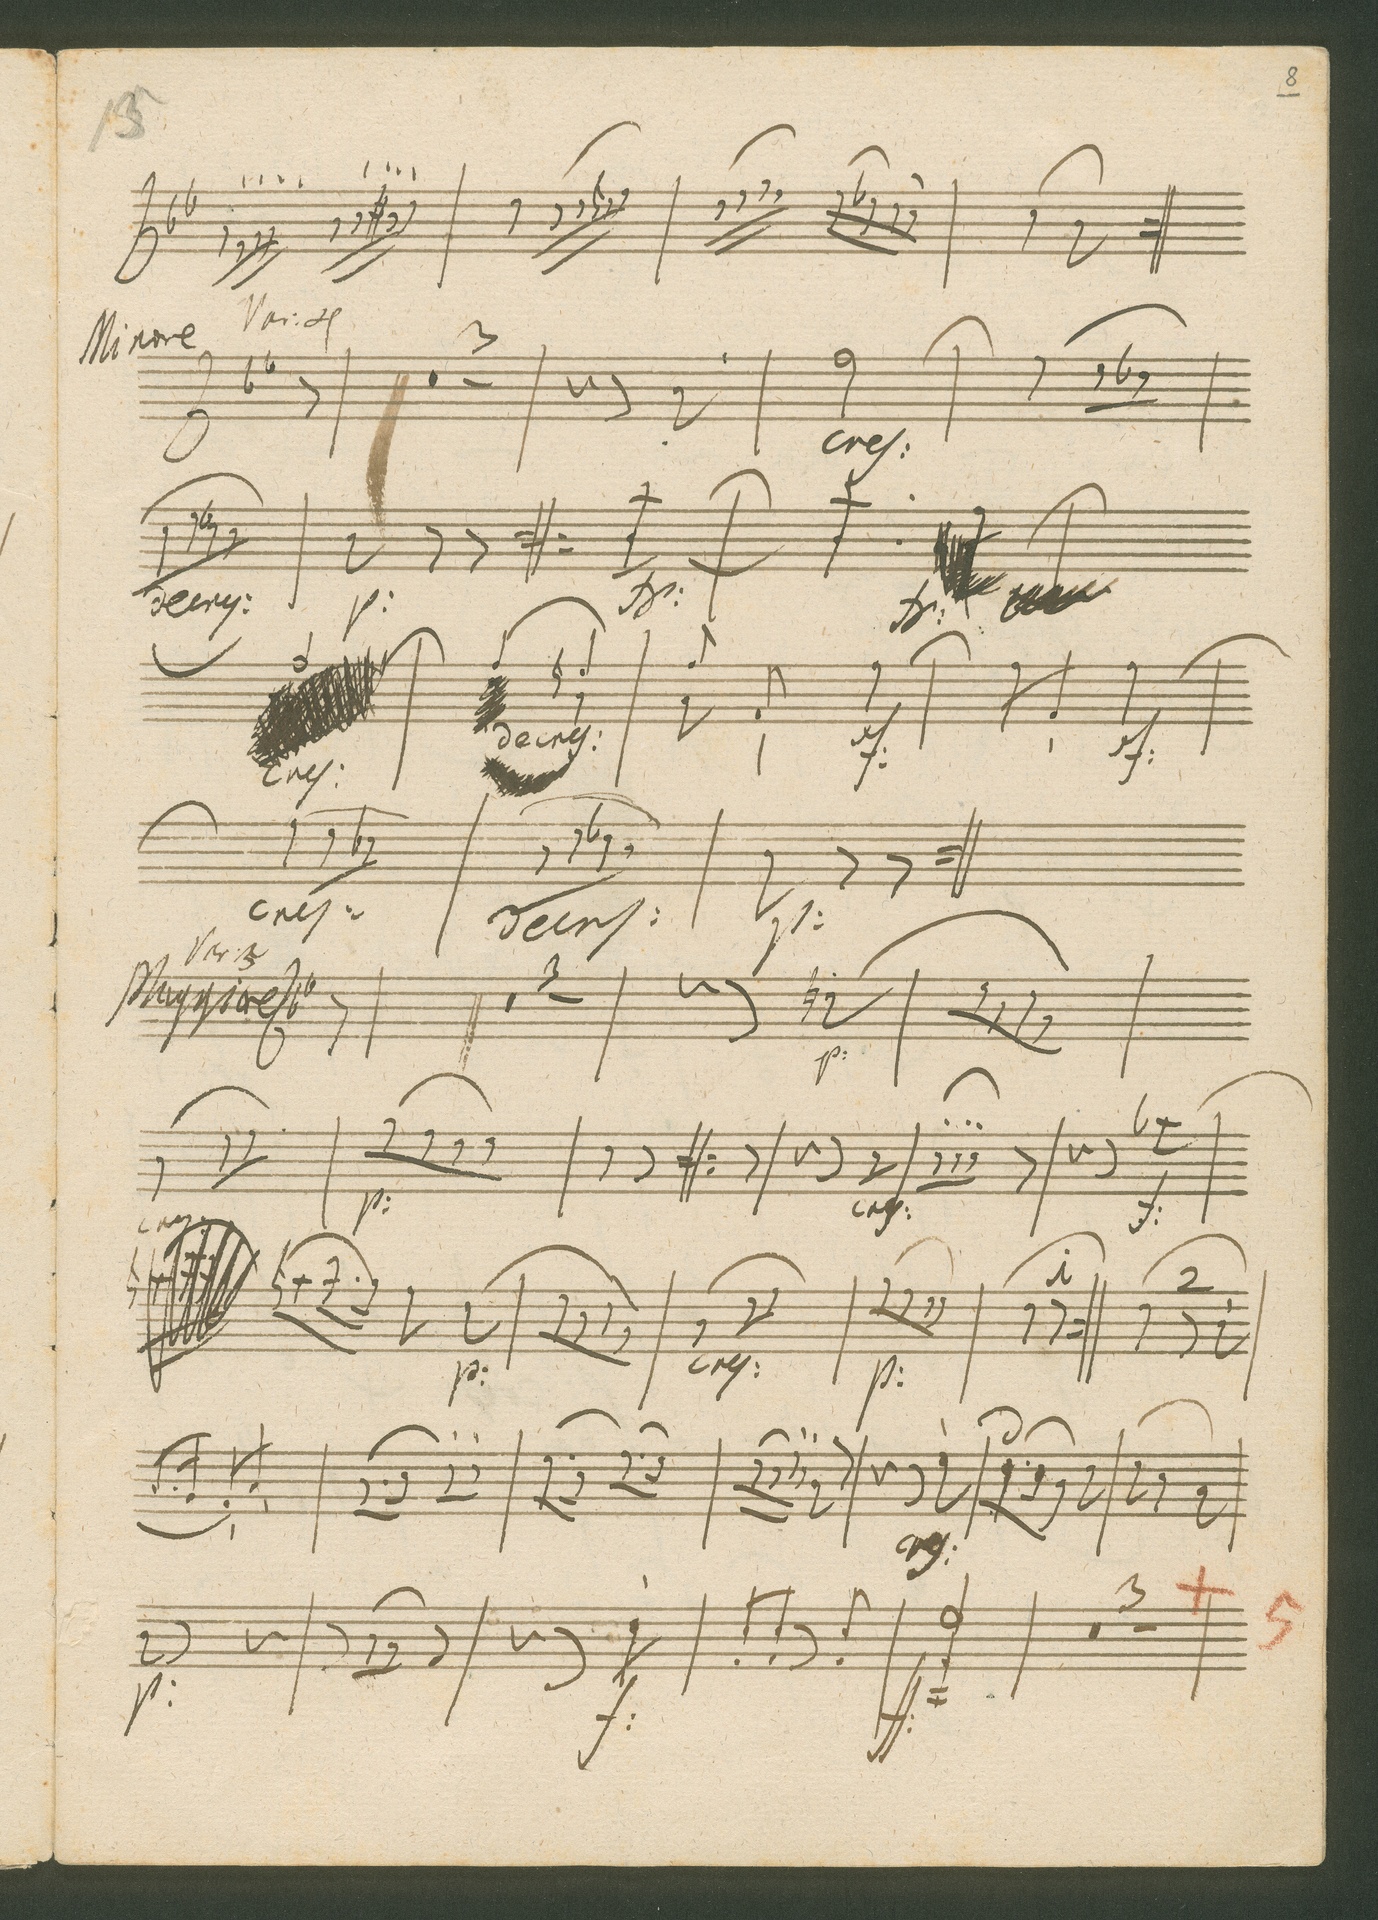 8
Minore Var: 4
3
cres:
decres: p:
cres: decres: sf: sf:
cres: decres: p:
Var: 5
Maggiore 3
p:
cres: p: cres: f:
p: cres: p: 1 2
cres:
3 + 5
p: f: ff: